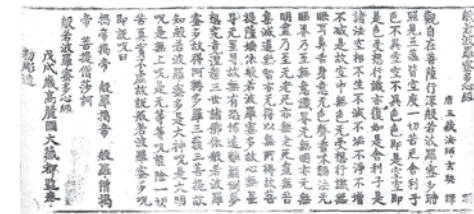 般若波羅蜜多心經
唐三藏法師玄奘 譯
觀自在菩薩行深般若波羅蜜多時
照見五蘊皆空度一切苦厄舍利子
色不異空空不異色色即是空空即
是色受想行識亦復如是舍利子是
諸法空相不生不滅不垢不淨不增
不減是故空中無色无受想行識無
眼耳鼻舌身意无色聲香味觸法无
眼界乃至無意識界无無明亦无無
明盡乃至无老死亦无老死盡無苦
集滅道無智亦無得以无所得故菩
提薩埵依般若波羅蜜多故心無罣
礙无罣礙故無有恐怖遠離顛倒夢
想究竟涅槃三世諸佛依般若波羅
蜜多故得阿耨多羅三藐三菩提故
知般若波羅蜜多是大神呪是大明
呪是無上呪是无等等呪能除一切
苦真實不虛故說般若波羅蜜多呪
即說呪曰
揭帝揭帝 般羅揭帝 般羅僧揭
帝 菩提僧莎訶
般若波羅蜜多心經
戊戌歲高麗國大藏都監奉
勅彫造